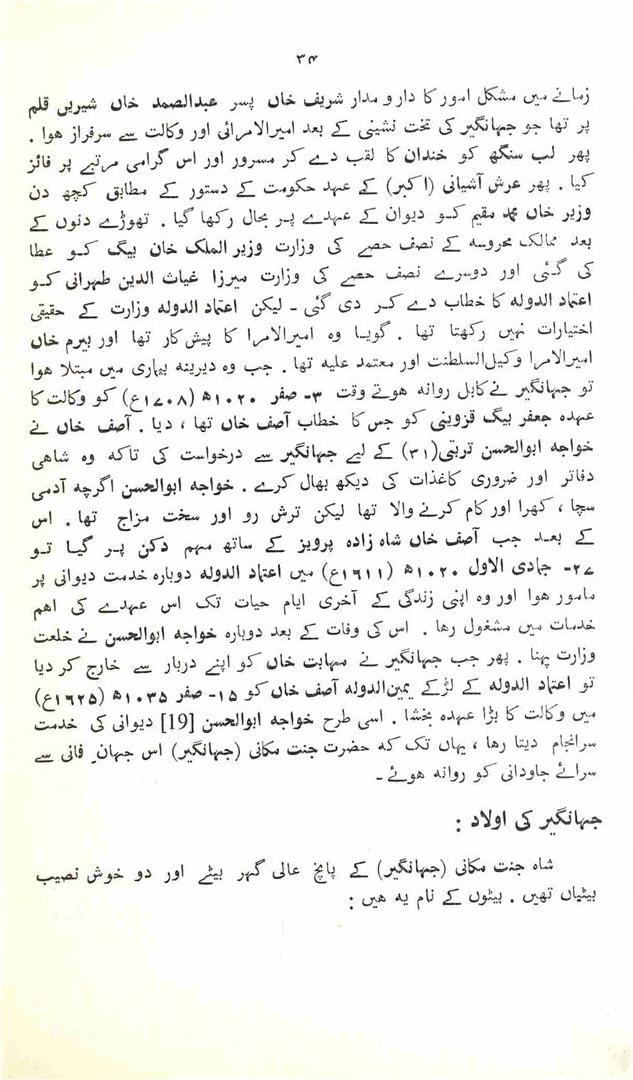 ۳۴
زمانے میں مشکل امور کا دار و مدار شریف خاں پسر عبدالصمد خاں شیریں قلم
پر تھا جو جہانگیر کی تخت نشینی کے بعد امیرالامرائی اور وکالت سے سرفراز ہوا .
پھر لب سنگھ کو خندان کا لقب دے کر مسرور اور اس گرامی مرتبے پر فائز
کیا . پھر عرش آشیانی (اکبر) کے عہد حکومت کے دستور کے مطابق کچھ دن
وزیر خاں محمد مقیم کو دیوان کے عہدے پر بحال رکھا گیا . تھوڑے دنوں کے
بعد ممالک محروسہ کے نصف حصے کی وزارت وزیر الملک خان بیگ کو عطا
کی گئی اور دوسرے نصف حصے کی وزارت میرزا غیاث الدین طہرانی کو
اعتماد الدولہ کا خطاب دے کر دی گئی - لیکن اعتماد الدولہ وزارت کے حقیقی
اختیارات نہیں رکھتا تھا . گویا وہ امیرالامرا کا پیش کار تھا اور بیرم خاں
امیرالامرا وکیل السلطنت اور معتمد علیہ تھا . جب وہ دیرینہ بیماری میں مبتلا ہوا
تو جہانگیر نے کابل روانہ ہوتے وقت ۳- صفر ۱۰۲۰ھ (۱۷۰۸ع) کو وکالت کا
عہدہ جعفر بیگ قزوینی کو جس کا خطاب آصف خاں تھا ، دیا . آصف خاں نے
خواجہ ابوالحسن تربتی(۳۱) کے لیے جہانگیر سے درخواست کی تاکہ وہ شاہی
دفاتر اور ضروری کاغذات کی دیکھ بھال کرے . خواجہ ابوالحسن اگرچہ آدمی
سچا ، کھرا اور کام کرنے والا تھا لیکن ترش رو اور سخت مزاج تھا . اس
کے بعد جب آصف خاں شاہ زادہ پرویز کے ساتھ مہم دکن پر گیا تو
۲۷- جمادی الاول ۱۰۲۰ھ (۱۶۱۱ع) میں اعتماد الدولہ دوبارہ خدمت دیوانی پر
مامور ہوا اور وہ اپنی زندگی کے آخری ایام حیات تک اس عہدے کی اہم
خدمات میں مشغول رہا . اس کی وفات کے بعد دوبارہ خواجہ ابوالحسن نے خلعت
وزارت پہنا . پھر جب جہانگیر نے مہابت خاں کو اپنے دربار سے خارج کر دیا
تو اعتماد الدولہ کے لڑکے یمین الدولہ آصف خاں کو ۱۵- صفر ۱۰۳۵ھ (۱۶۲۵ع)
میں وکالت کا بڑا عہدہ بخشا . اسی طرح خواجہ ابوالحسن [19] دیوانی کی خدمت
سرانجام دیتا رہا ، یہاں تک کہ حضرت جنت مکانی (جہانگیر) اس جہانِ فانی سے
سرائے جاودانی کو روانہ ہوئے -
جہانگیر کی اولاد :
شاہ جنت مکانی (جہانگیر) کے پانچ عالی گہر بیٹے اور دو خوش نصیب
بیٹیاں تھیں . بیٹوں کے نام یہ ہیں :